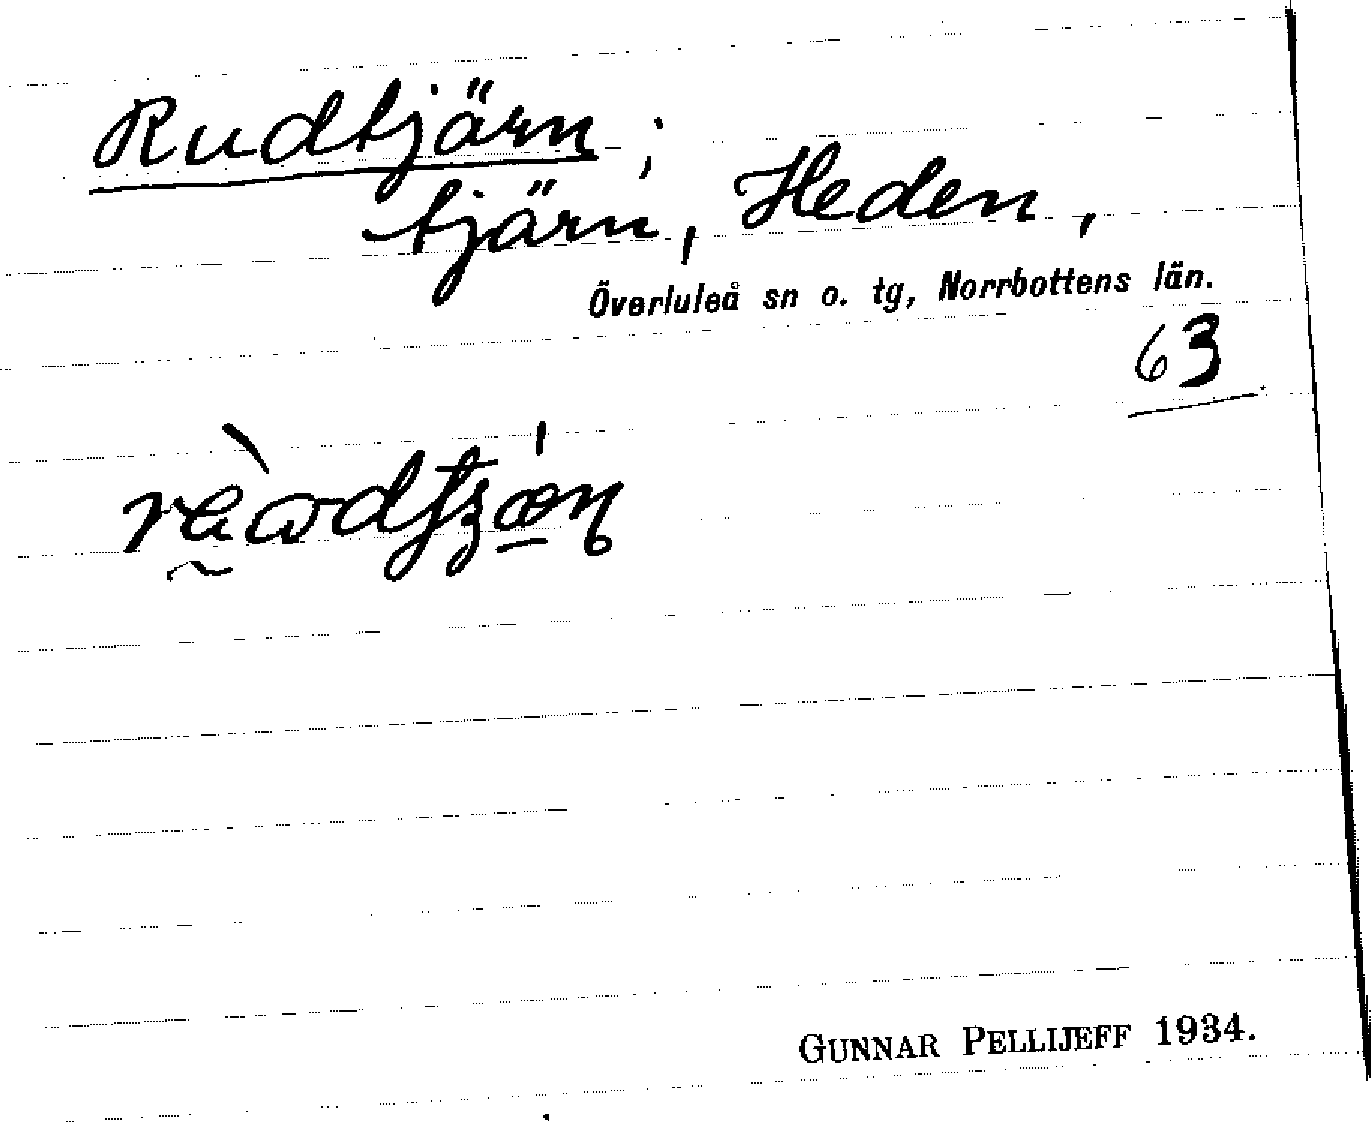 Rudtjärn;
tjärn, Heden,
Överluleå sn o. tg, Norrbottens län.
63
GUNNAR PELLIJEFF 1934.